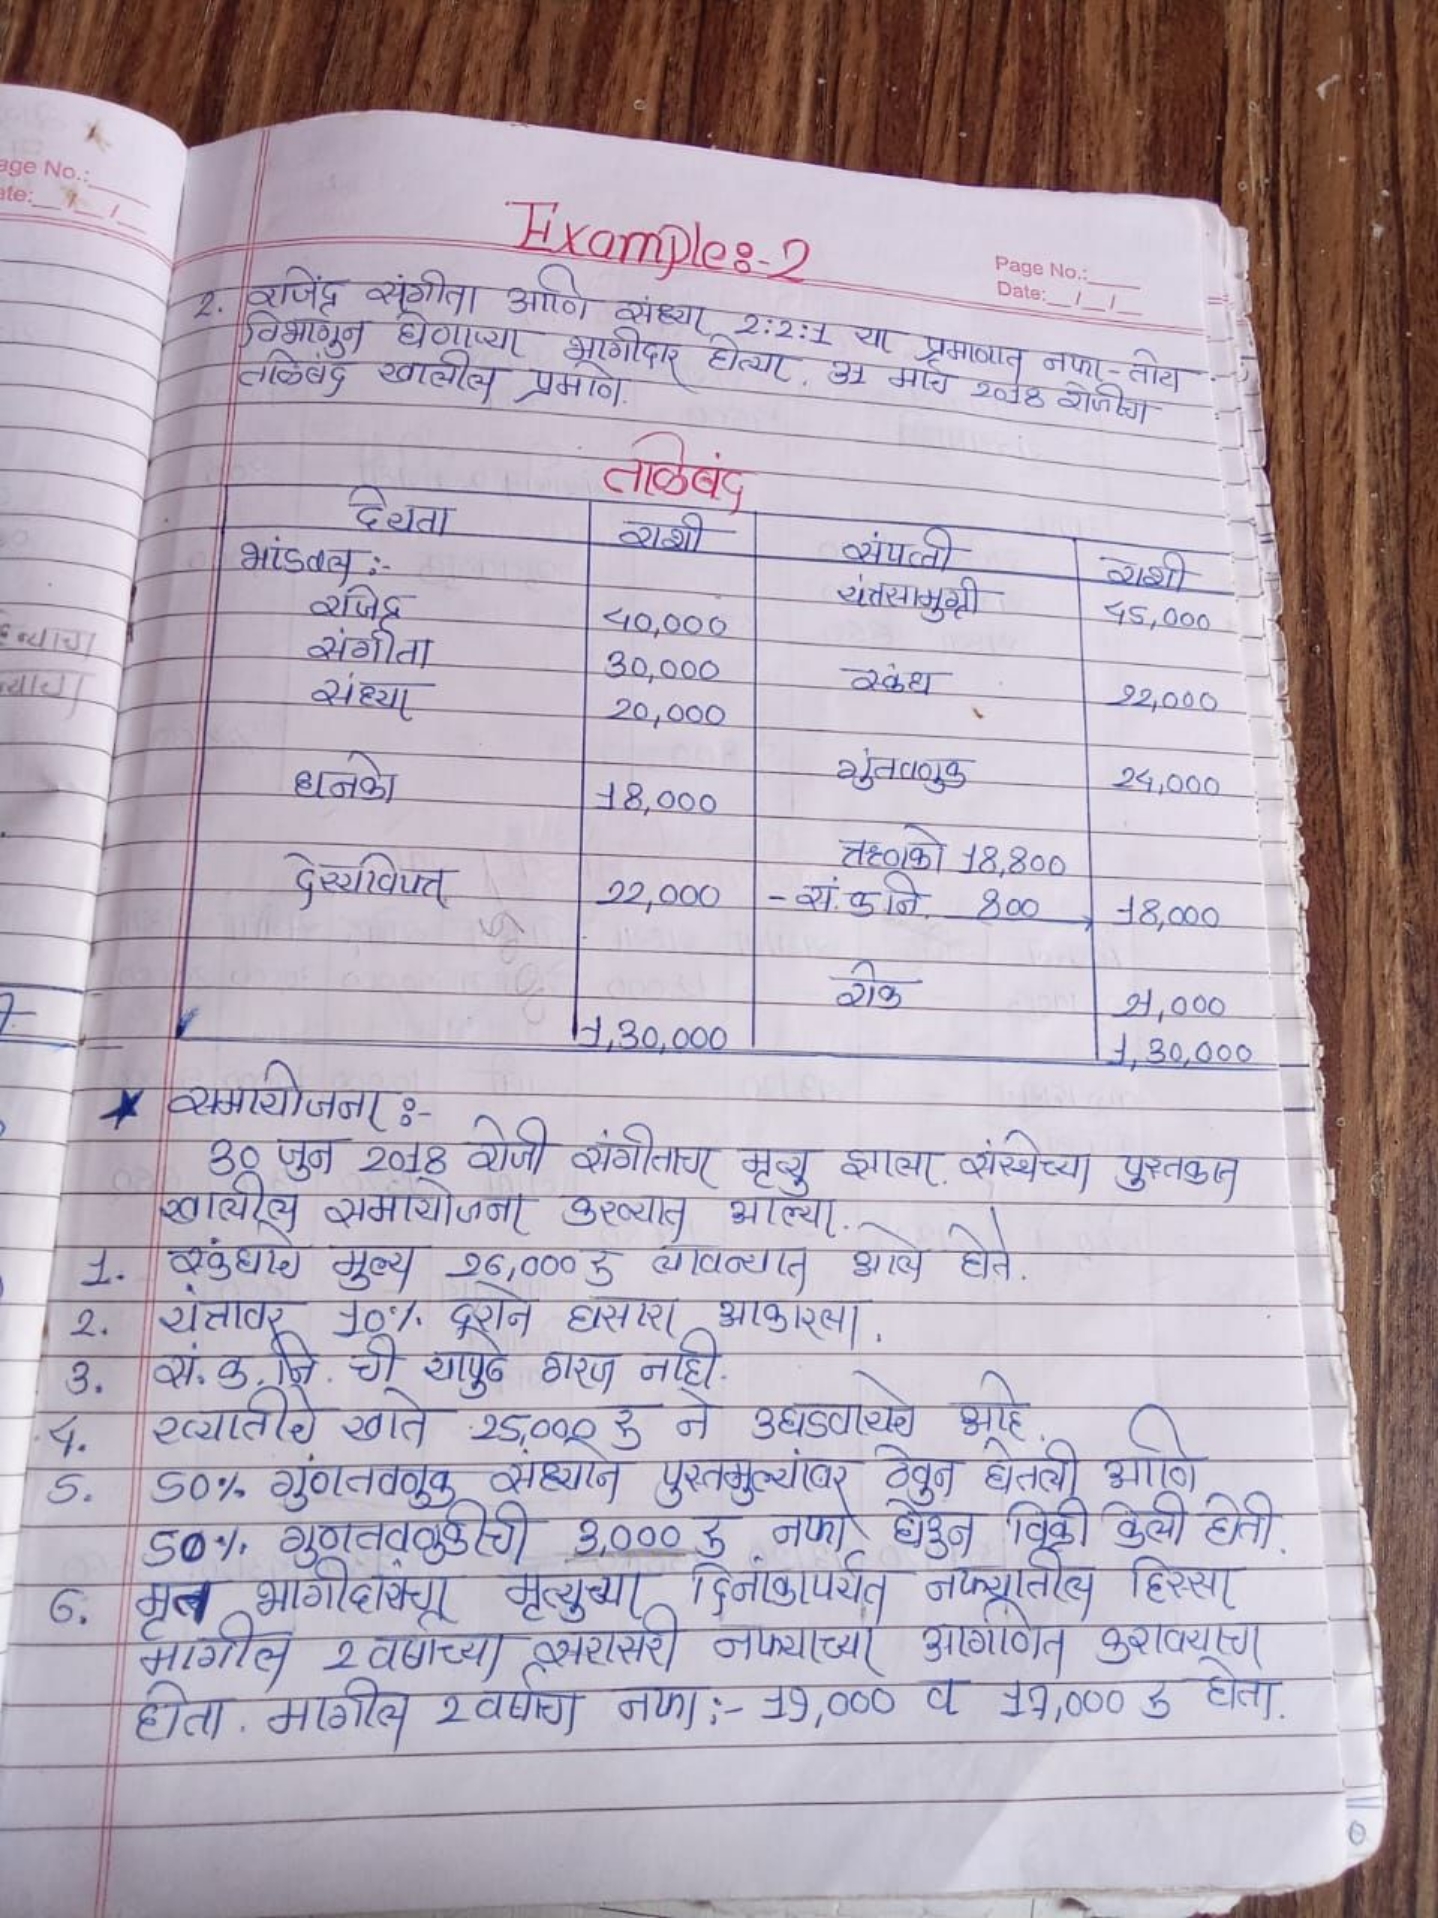 Page No.:
Date: / /
Example:-2
2. राजेंद्र संगीता आणि संध्या 2:2:1 या प्रमाणात नफा-तोटा
विभागुन घेणाऱ्या भागीदार होत्या. 31 मार्च 2018 रोजीचा
ताळेबंद खालील प्रमाणे.
ताळेबंद
देयता राशी संपत्ती राशी
भांडवल :- यंत्रसामुग्री 45,000
राजेंद्र 40,000
संगीता 30,000 स्कंध 22,000
संध्या 20,000
गुंतवणुक 24,000
धनको 18,000
ऋणको 18,800
देयविपत्र 22,000 - सं.क्र.नि. 800 18,000
रोक 21,000
1,30,000 1,30,000
★ समायोजना :-
30 जुन 2018 रोजी संगीताचा मृत्यु झाला. संस्थेच्या पुस्तकात
खालील समायोजना करण्यात आल्या.
1. स्कंधाचे मुल्य 26,000 रु लावन्यात आले होते.
2. यंत्रावर 10% दराने घसारा आकारला.
3. सं.क्र.नि. ची यापुढे गरज नाही.
4. ख्यातीचे खाते 25,000 रु ने उघडवायचे आहे.
5. 50% गुंणतवणुक संध्याने पुस्तमुल्यांवर ठेवुन घेतली आणि
50% गुणतवणुकीची 3,000 रु नफा घेऊन विक्री केली होती.
6. मृत भागीदारांच्या मृत्युच्या दिनांकापर्यंत नफ्यातील हिस्सा
मागील 2 वर्षाच्या सरासरी नफ्याच्या आगणित करावयाचा
होता. मागील 2 वर्षाचा नफा :- 19,000 व 17,000 रु होता.